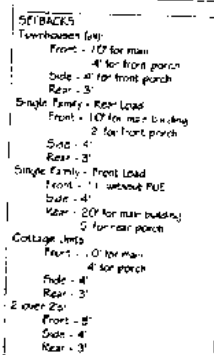 SETBACKS
Townhouses
Front - 10' for main
4' for front porch
Side - 4' for front porch
Rear - 3'
Single Family - Rear Load
Front - 10' for main building
2' for front porch
Side - 4'
Rear - 3'
Single Family - Front Load
Front - without PUE
Side - 4'
Rear - 20' for main building
5' for rear porch
Cottage Units
Front - for main
4' for porch
Side - 4'
Rear - 3'
2 over 2's
Front - 8'
Side - 4'
Rear - 3'